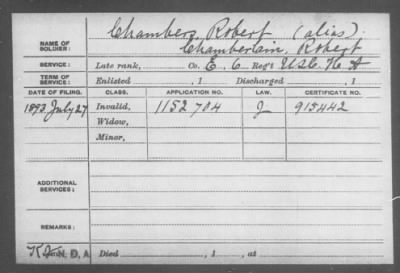 Chambers, Robert (alias)
NAME OF SOLDIER: Chamberlain, Robert
SERVICE: Late rank, Co. E, 6 Reg't U.S.C. H. A
TERM OF SERVICE: Enlisted , 1 Discharged , 1
DATE OF FILING. CLASS. APPLICATION NO. LAW. CERTIFICATE NO.
1893 July 27 Invalid, 1152704 J 915442
Widow,
Minor,
ADDITIONAL SERVICES:
REMARKS:
N, D, A Died , 1 , at